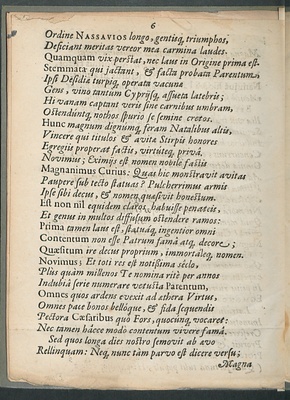 6
Ordine NASSAVIOS longo, gentiuq́, triumphos,
Deficiant meritas vereor mea carmina laudes.
Quamquam vix perſtat, nec laus in Origine prima eſt.
Stemmata qui jactant, & facta probata Parentum,
Ipſi Deſidia turpiq́, operata vacuna
Gens, vino tantum Cypriſq́, aſſueta latebris;
Hi vanam captant veris ſine carnibus umbram,
Oſtenduntq́, nothos ſpurio ſe ſemine cretos.
Hunc magnum dignumq́, feram Natalibus altis,
Vincere qui titulos & avitæ Stirpis honores
Egregiè properat factis, virtuteq́, privâ.
Novimus; Eximijs eſt nomen nobile factis
Magnanimus Curius: Quas hic monſtravit avitas
Paupere ſub tecto ſtatuas? Pulcherrimus armis
Ipſe ſibi decus, & nomen quæſivit honeſtum.
Eſt non nil equidem claros habuiſſe penateis,
Et genus in multos diffuſum oſtendere ramos:
Prima tamen laus eſt, ſtatuāq́, ingentior omni
Contentum non eſſe Patrum famâ atq, decore;
Quæſitum ire decus proprium, immortaleq́, nomen.
Novimus; Et toti res eſt notiſſima ſeclo,
Plus quàm millenos Te nomina ritè per annos
Indubiâ ſerie numerare vetuſta Parentum,
Omnes quos ardens evexit ad æthera Virtus,
Omnes pace bonos belloque, & fida ſequendis
Pectora Cæſaribus quò Fors, quocunq́, vocaret:
Nec tamen hâcce modo contentum vivere famâ.
Sed quos longa dies noſtro ſemovit ab ævo
Rellinquam: Neq, nunc tàm parvo eſt dicere verſu;
Magna